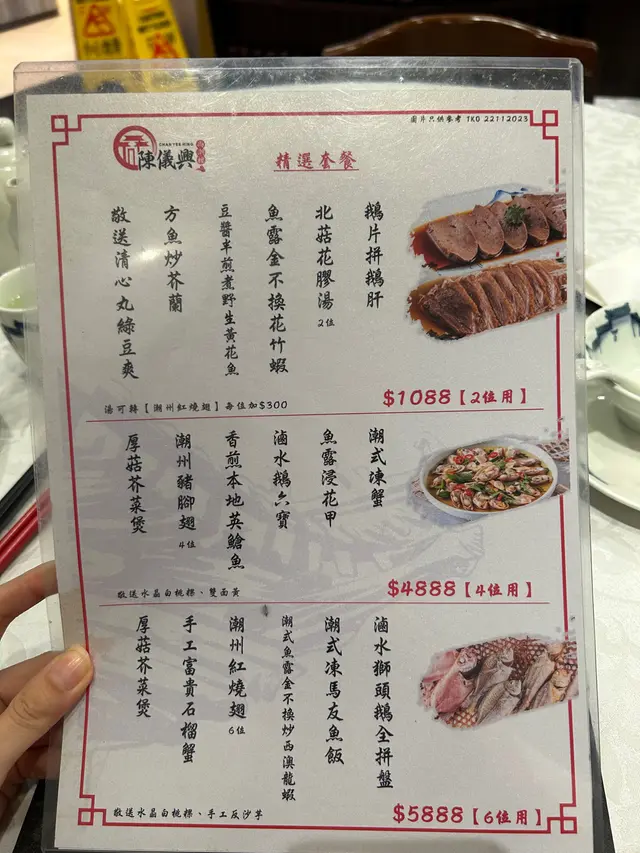 圖片只供參考 TKO 22112023
CHAN YEE HING
陳儀興
精選套餐
鵝片拼鵝肝
北菇花膠湯 2位
魚露金不換花竹蝦
豆醬半煎煮野生黃花魚
方魚炒芥蘭
敬送清心丸綠豆爽
湯可轉【潮州紅燒翅】每位加$300
$1088【2位用】
潮式凍蟹
魚露浸花甲
滷水鵝六寶
香煎本地英鯧魚
潮州豬腳翅 4位
厚菇芥菜煲
敬送水晶白桃粿、雙面黃
$4888【4位用】
滷水獅頭鵝全拼盤
潮式凍馬友魚飯
潮式魚露金不換炒西澳龍蝦
潮州紅燒翅 6位
手工富貴石榴蟹
厚菇芥菜煲
敬送水晶白桃粿、手工反沙芋
$5888【6位用】